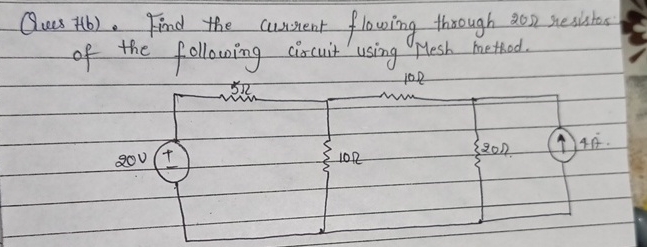 Ques 7(b). Find the current flowing through 20Ω resistor
of the following circuit using Mesh method.
10Ω
5Ω
20V
+
-
10Ω
20Ω
4A.